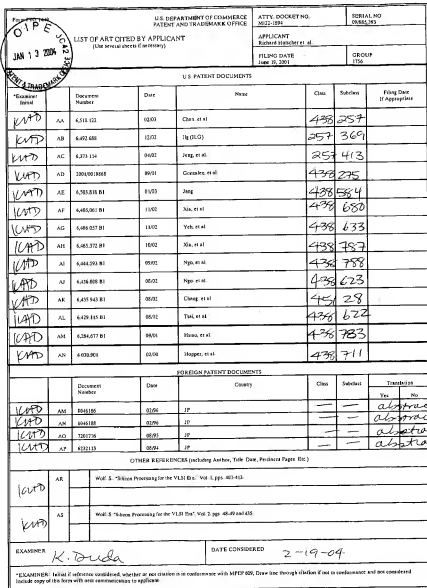 U.S. DEPARTMENT OF COMMERCE
PATENT AND TRADEMARK OFFICE
ATTY. DOCKET NO.
MI22-1694
SERIAL NO
LIST OF ART CITED BY APPLICANT
(Use several sheets if necessary)
APPLICANT
FILING DATE
June 19, 2001
GROUP
1756
OIPE JC42
JAN 13 2004
PATENT & TRADEMARK OFFICE
U.S. PATENT DOCUMENTS
*Examiner Initial Document Number Date Name Class Subclass Filing Date If Appropriate
KMD AA 02/03 Chan, et al 438 257
KMD AB 12/02 257 369
KMD AC 04/02 Jeng, et al 257 413
KMD AD 09/01 Gonzalez, et al 438 275
KMD AE 01/03 Jang 438 584
KMD AF 11/02 Xia, et al 438 680
KMD AG 11/02 Yeh, et al 438 633
KMD AH 10/02 Xia, et al 438 787
KMD AI 09/02 Ngo, et al 438 788
KMD AJ 08/02 Ngo, et al 438 623
KMD AK 08/02 Chang, et al 451 28
KMD AL 08/02 Tsai, et al 438 622
KMD AM 09/01 438 783
KMD AN Hopper, et al 438 711
FOREIGN PATENT DOCUMENTS
Document Number Date Country Class Subclass Translation
Yes No
KMD AM 8046186 02/96 JP — — abstrac
KMD AN 8046188 02/96 JP — — abstrac
KMD AO 7201716 08/95 JP — — abstra
KMD AP 6232113 08/94 JP — — abstra
OTHER REFERENCES (including Author, Title, Date, Pertinent Pages, Etc.)
KMD AR Wolf, S. "Silicon Processing for the VLSI Era." Vol. 1, pgs.
KMD AS Wolf, S. "Silicon Processing for the VLSI Era." Vol. 2, pgs. 48-49 and 435.
EXAMINER K. Duda DATE CONSIDERED 2-19-04
*EXAMINER: Initial if reference considered, whether or not citation is in conformance with MPEP 609; Draw line through citation if not in conformance and not considered
Include copy of this form with next communication to applicant